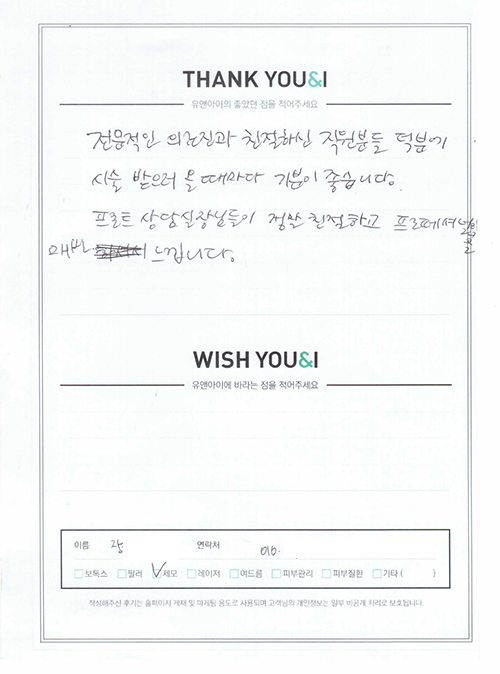 THANK YOU&I
유앤아이의 좋았던 점을 적어주세요
전문적인 의료진과 친절하신 직원분들 덕분에
시술 받으러 올때마다 기분이 좋습니다.
프론트 상담실장님들이 정말 친절하고 프로페셔널함을
매번 느낍니다.
WISH YOU&I
유앤아이에 바라는 점을 적어주세요
이름 장 연락처 010.
보톡스 필러 제모 레이저 여드름 피부관리 피부질환 기타 ( )
작성해주신 후기는 홈페이지 게재 및 마케팅 용도로 사용되며 고객님의 개인정보는 일부 비공개 처리로 보호됩니다.